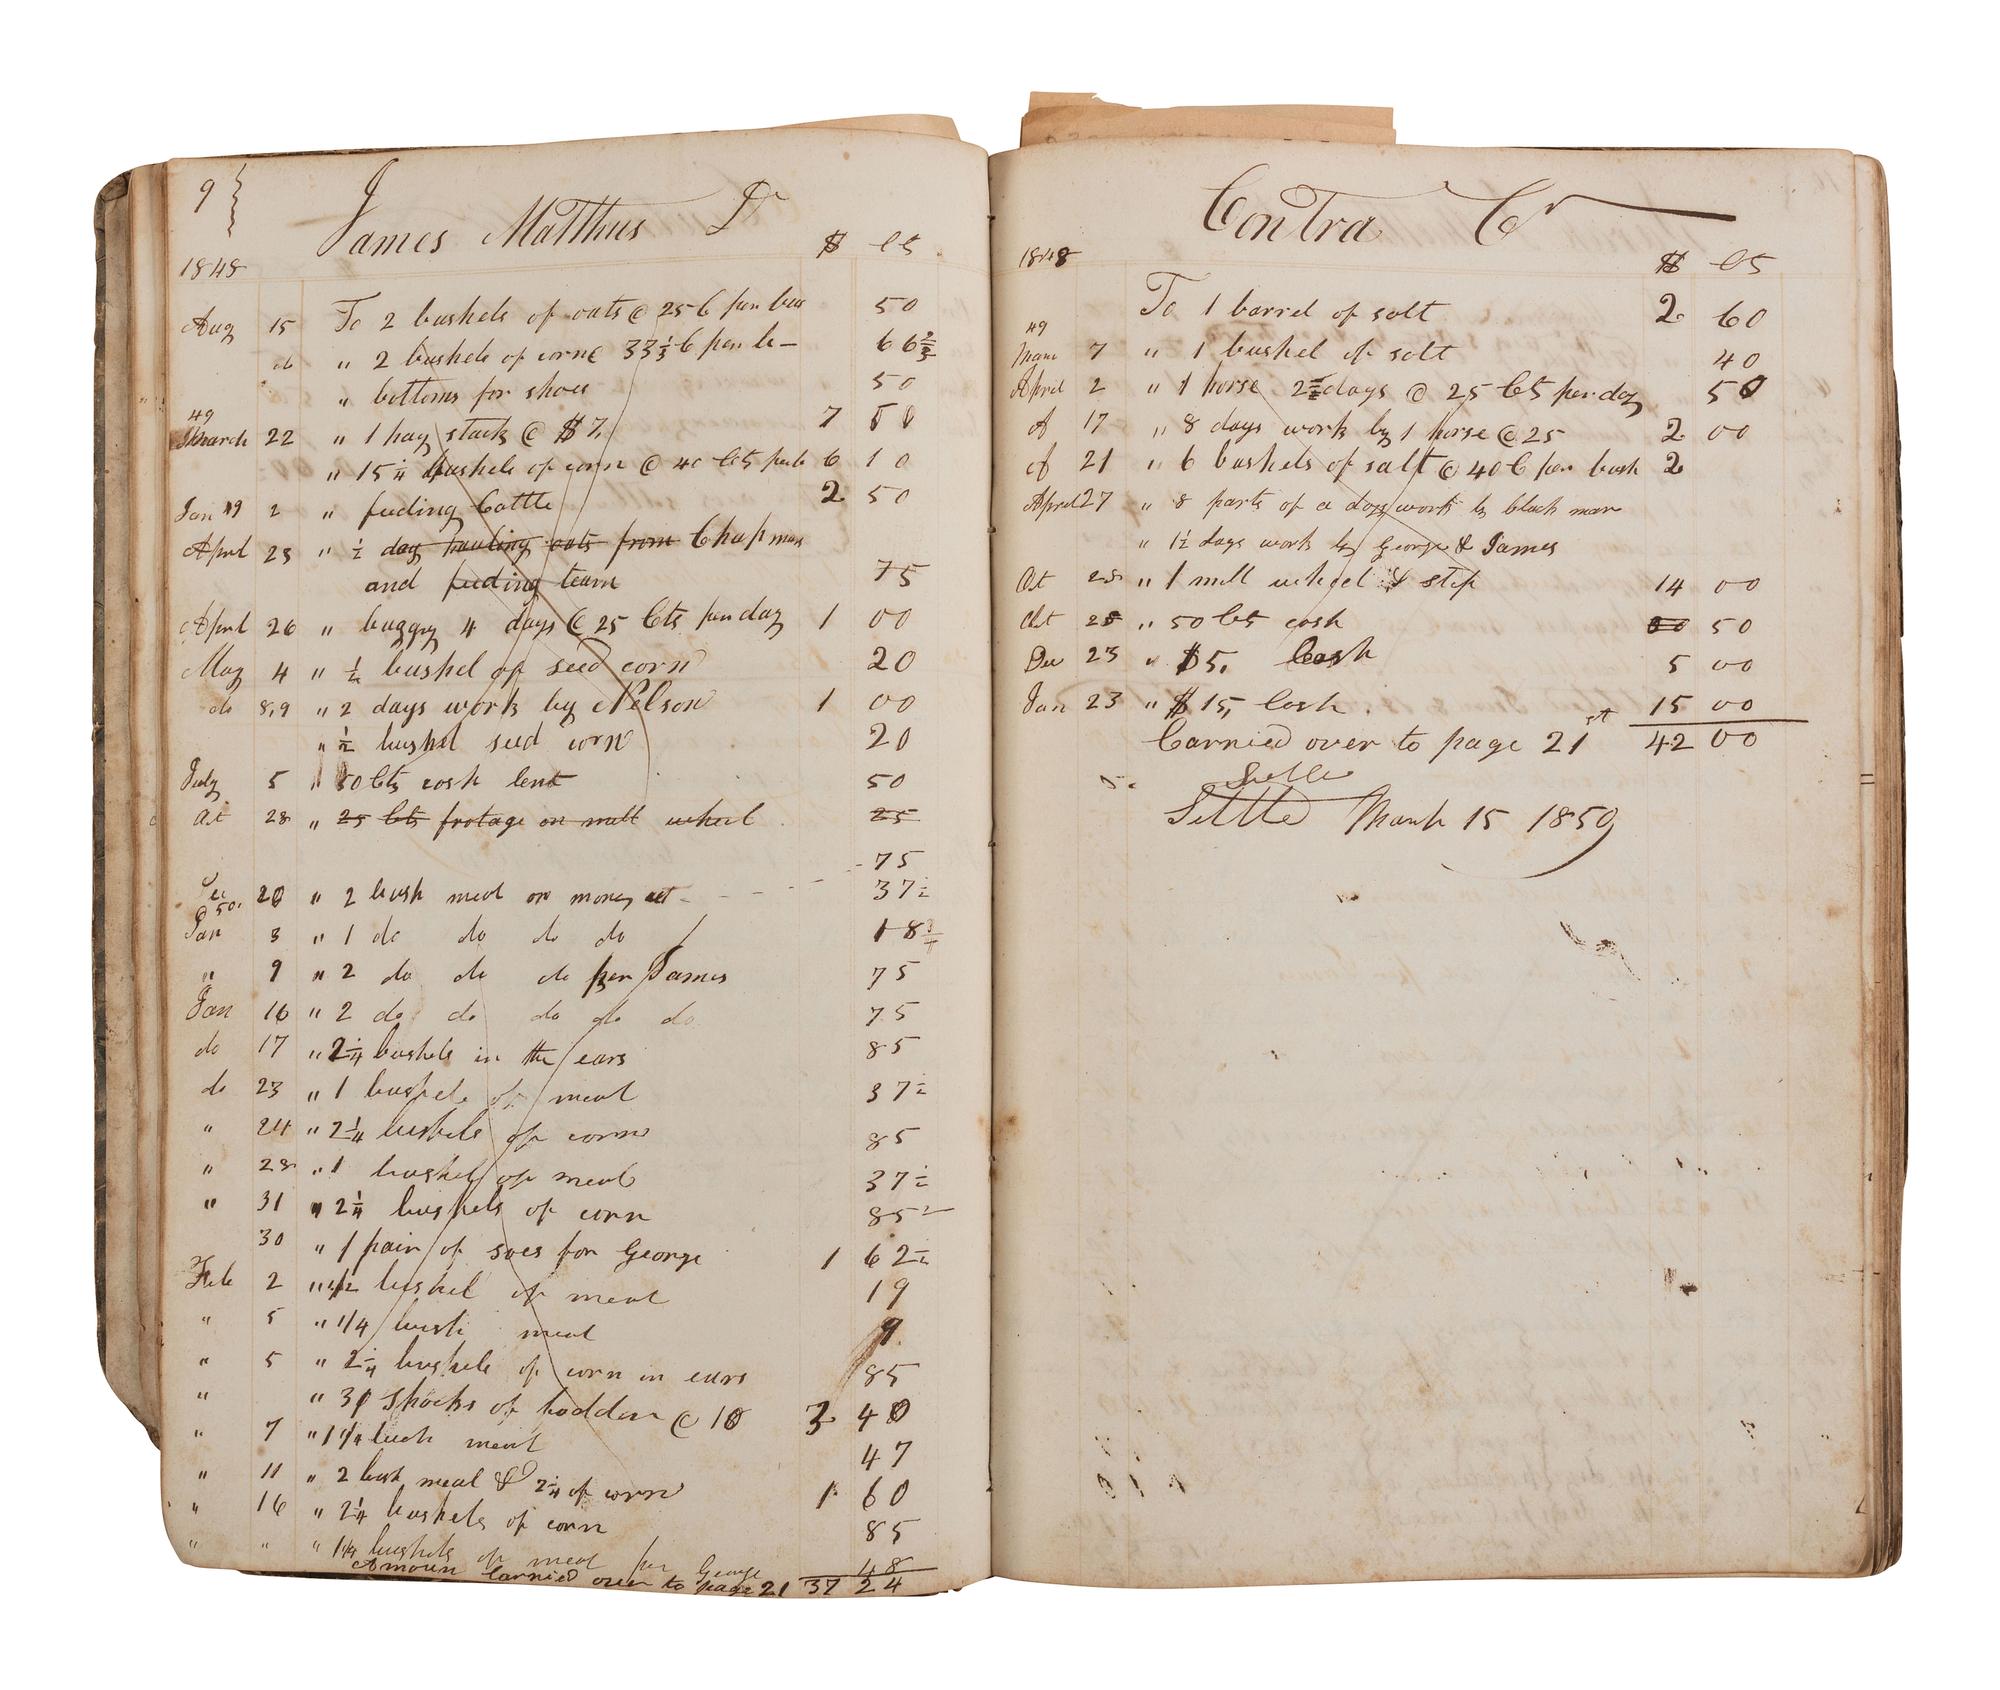 9
James Matthus Dr
$ Cts
1848
Aug 15 To 2 bushels of oats @ 25 C per bus 50
do " 2 bushels of corn @ 33 1/3 C per b— 66 2/3
" bottoms for shoes 50
49
March 22 " 1 hay stack @ $7, 7
" 15 1/4 bushels of corn @ 40 Cts per b 6 10
Jan 49 2 " feeding Cattle 2 50
April 25 " 1/2 day hauling oats from Chapmans
and feeding team 75
April 26 " buggy 4 days @ 25 Cts per day 1 00
May 4 " 1/2 bushel of seed corn 20
do 8,9 " 2 days work by Nelson 1 00
" 1/2 bushel seed corn 20
July 5 " 50 Cts cash lent 50
28 " 25 Cts frotage on mill wheel 25
75
Dec 20 " 2 bush meal on money 37 1/2
50
Jan 3 " 1 do do do do 18 3/4
" 9 " 2 do do do per James 75
Jan 16 " 2 do do do do do 75
do 17 " 2 1/4 bushels in the ears 85
do 23 " 1 bushel of meal 37 1/2
" 24 " 2 1/4 bushels of corn 85
" 28 " 1 bushel of meal 37 1/2
" 31 " 2 1/4 bushels of corn 85
30 " 1 pair of soes for George 1 62 1/2
Feb 2 " 1/2 bushel of meal 19
" 5 " 1/4 bush meal 9
" 5 " 2 1/4 bushels of corn in ears 85
" " shocks of fodder @ 10 3 40
" 7 " 1 1/4 bush meal 47
" 11 " 2 bush meal & 2 1/4 of corn 1 60
" 16 " 2 1/4 bushels of corn 85
" " " 1 1/4 bushels of meal per George 48
Amoun Carried over to page 21 37 24
Contra Cr
1848 $ Cts
To 1 barrel of salt 2 60
49
7 " 1 bushel of salt 40
April 2 " 1 horse 2 days @ 25 Cts per day 50
of 17 " 8 days work by 1 horse @ 25 2 00
of 21 " 6 bushels of salt @ 40 C per bush 2
April 27 " 8 parts of a days work by black man
" 1 1/2 days work by George & James
28 " 1 mill wheel & step 14 00
28 " 50 Cts cash 50
Dec 23 " $5, Cash 5 00
Jan 23 " $15, Cash. 15 00
Carried over to page 21st 42 00
Settle
Settled March 15 1850